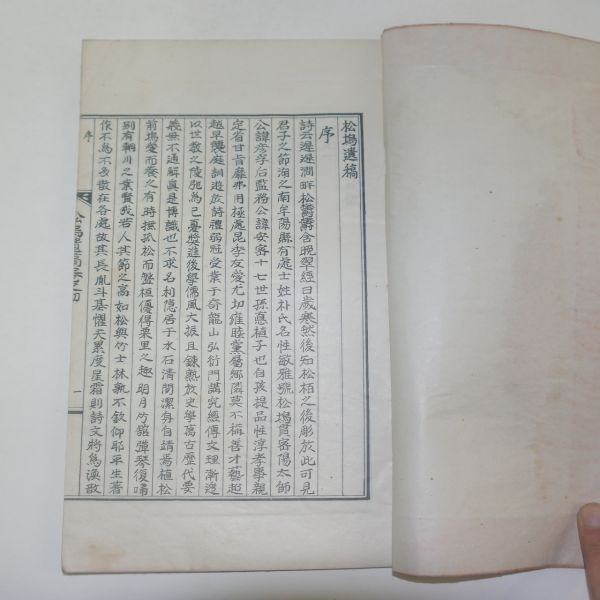 松塢遺稿
序
詩云遲遲澗畔松鬱鬱含晩翠經曰歲寒然後知松栢之後彫於此可見
君子之節湖之南牟陽縣有處士姓朴氏名性敏雅號松塢貫密陽太師
公諱彦孚后監務公諱安密十七世孫應植子也自孩提品性淳孝事親
定省甘旨靡弗用極處昆季友愛尤切雍睦黨屬鄉隣莫不稱善才藝超
越早襲庭訓遊放詩禮弱冠受業于奇龍山弘衍門講究經傳文理漸邃
以世敎之陵弛爲己憂奬進後學儒風大振且鍊熟於史學萬古歷代要
義無不通解眞是博識也不求名利隱居于水石淸閒潔身自靖焉植松
前塢愛而養之有時撫孤松而盤桓優得栗里之趣明月竹館彈琴復嘯
別有輞川之業賢哉若人其節之高如松與竹士林孰不欽仰耶平生著
作不爲不多散在各處故其長胤斗基懼夫累度星霜則詩文將爲湮散
序
松塢遺稿卷之
一